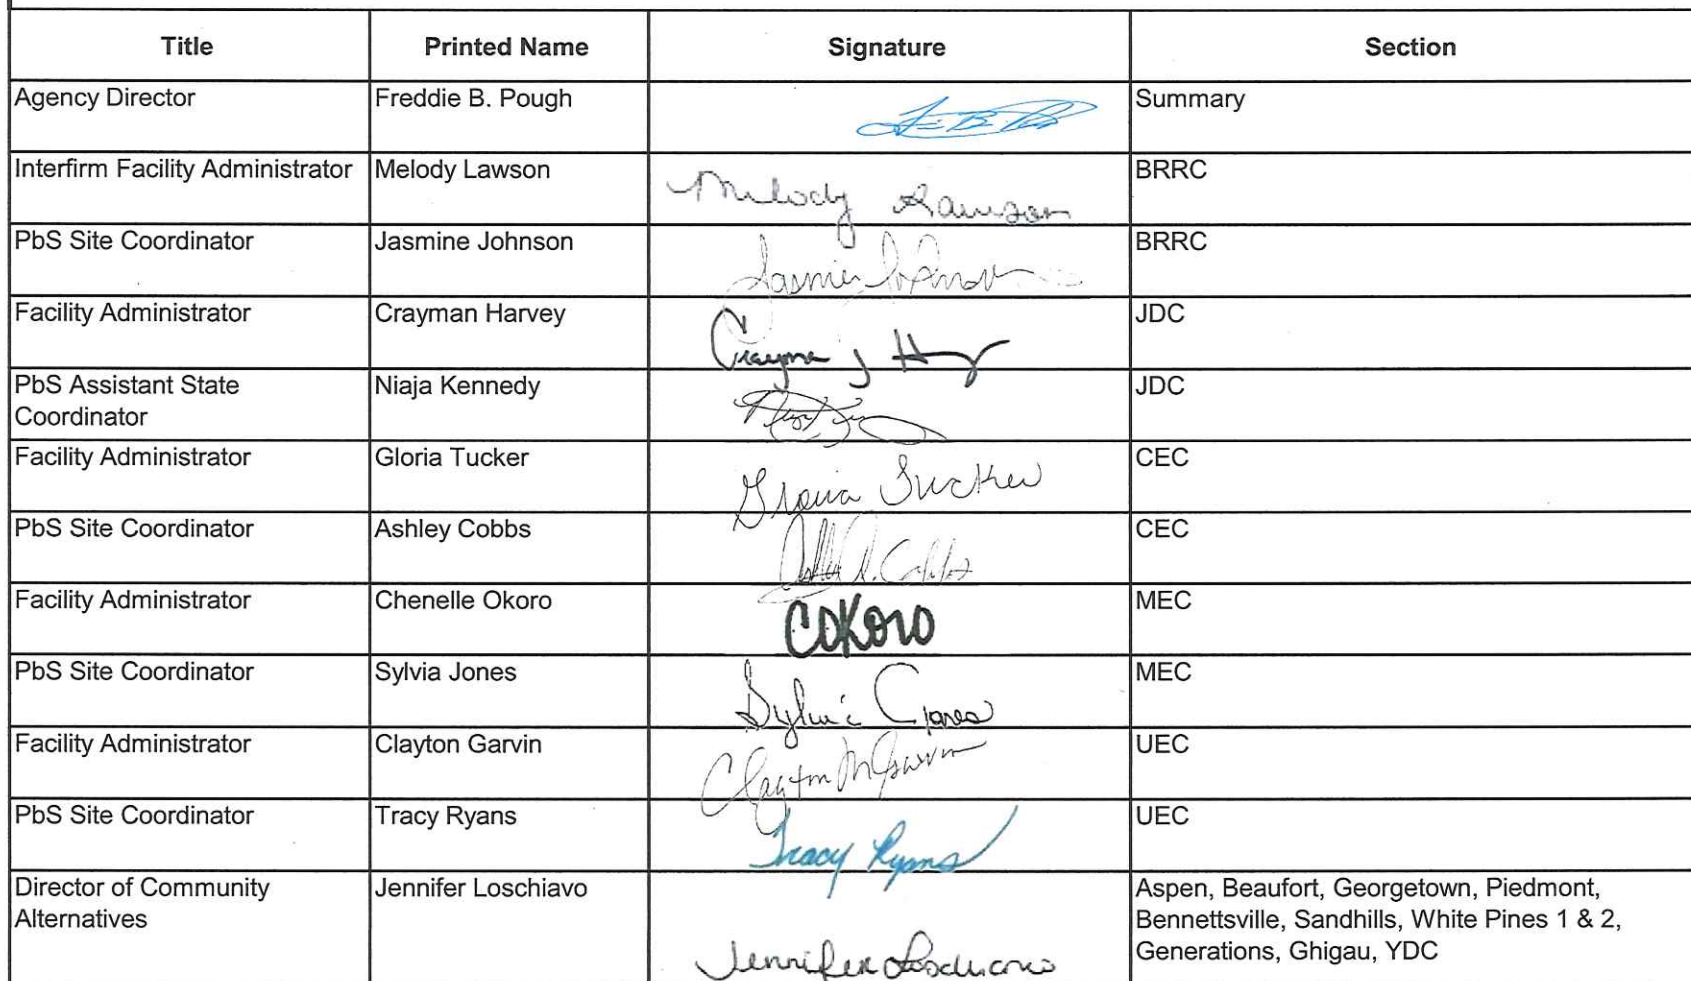 Title Printed Name Signature Section
Agency Director Freddie B. Pough Summary
Interfirm Facility Administrator Melody Lawson Melody Lawson BRRC
PbS Site Coordinator Jasmine Johnson Jasmine Johnson BRRC
Facility Administrator Crayman Harvey Crayman J H JDC
PbS Assistant State Niaja Kennedy JDC
Coordinator
Facility Administrator Gloria Tucker Gloria Tucker CEC
PbS Site Coordinator Ashley Cobbs CEC
Facility Administrator Chenelle Okoro COKORO MEC
PbS Site Coordinator Sylvia Jones Sylvia Jones MEC
Facility Administrator Clayton Garvin Clayton M Garvin UEC
PbS Site Coordinator Tracy Ryans Tracy Ryans UEC
Director of Community Jennifer Loschiavo Aspen, Beaufort, Georgetown, Piedmont,
Alternatives Bennettsville, Sandhills, White Pines 1 & 2,
Jennifer Loschiavo Generations, Ghigau, YDC